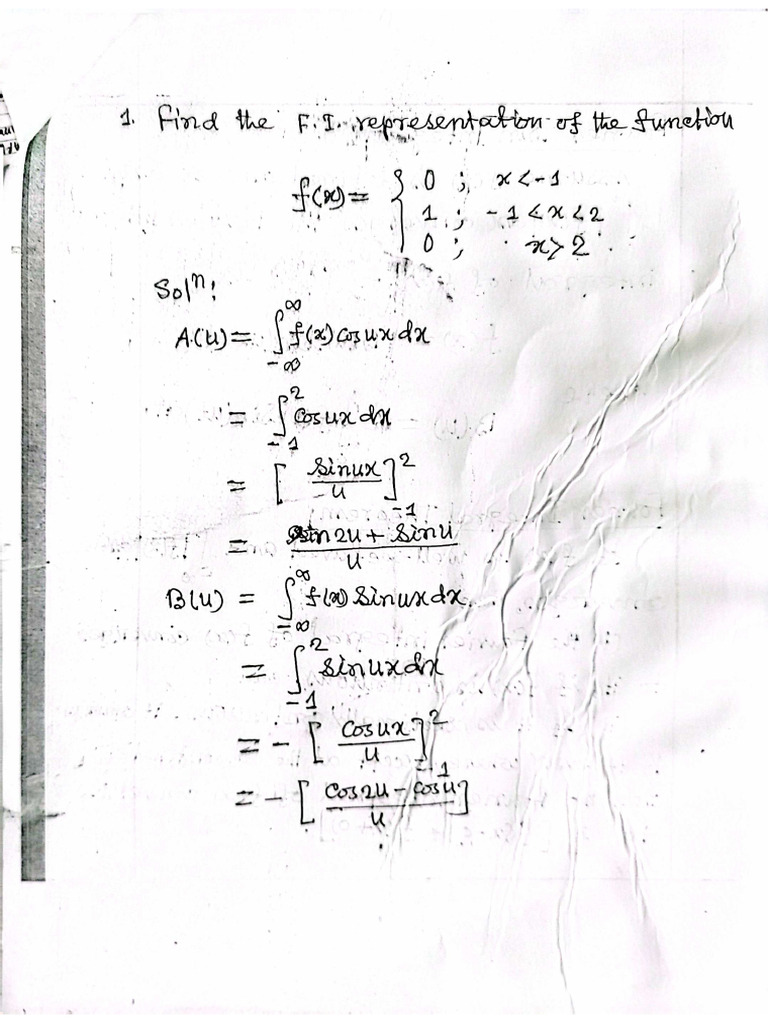 1. Find the F.I. representation of the function
f(x) = { 0 ; x < -1
1 ; -1 < x < 2
0 ; x > 2
Solⁿ:
A(u) = ∫_{-∞}^{∞} f(x) cos ux dx
= ∫_{-1}^{2} cos ux dx
= [ sin ux / u ]_{-1}^{2}
= sin 2u + sin u / u
B(u) = ∫_{-∞}^{∞} f(x) sin ux dx
= ∫_{-1}^{2} sin ux dx
= - [ cos ux / u ]_{-1}^{2}
= - [ cos 2u - cos u / u ]